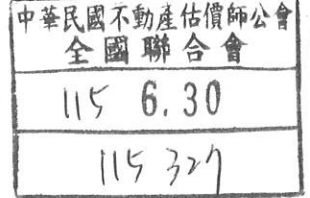 中華民國不動產估價師公會
全國聯合會
115 6.30
115 327